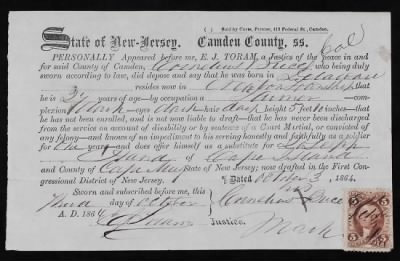 Sold by Carse, Printer, 113 Federal St., Camden.
State of New-Jersey. Camden County, ss.
Col
PERSONALLY Appeared before me, E. J. TORAM, a Justice of the peace in and
for said County of Camden, Cornelius Price who being duly
sworn according to law, did depose and say that he was born in Delaware
resides now in Township
that he is 34 years of age—by occupation a Farmer —com-
plexion Black —eyes dark hair dark, height 5 feet inches—that
he has not been enrolled, and is not now liable to draft—that he has never been discharged
from the service on account of disability or by sentence of a Court Martial, or convicted of
any felony—and knows of no impediment to his serving honestly and faithfully as a soldier
for One year—and does offer himself as substitute for Joseph
Hand of Cape Island
and County of Cape May State of New Jersey; now drafted in the First Con-
gressional District of New Jersey. Dated October 3, 1864.
Sworn and subscribed before me, this
his
Third day of October
Cornelius X Price
A. D. 1864 E J Toram Justice.
Mark
5 5